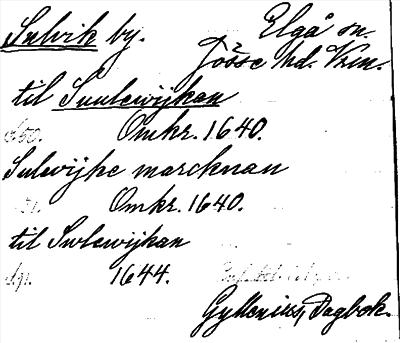 Sulvik by. Elgå sn.
Jösse hd. Vrm.
til Suulewijkan
Omkr. 1640.
Sulewijke marcknan
Omkr. 1640.
til Swlewijkan
1644.
Gyllenius, Dagbok.